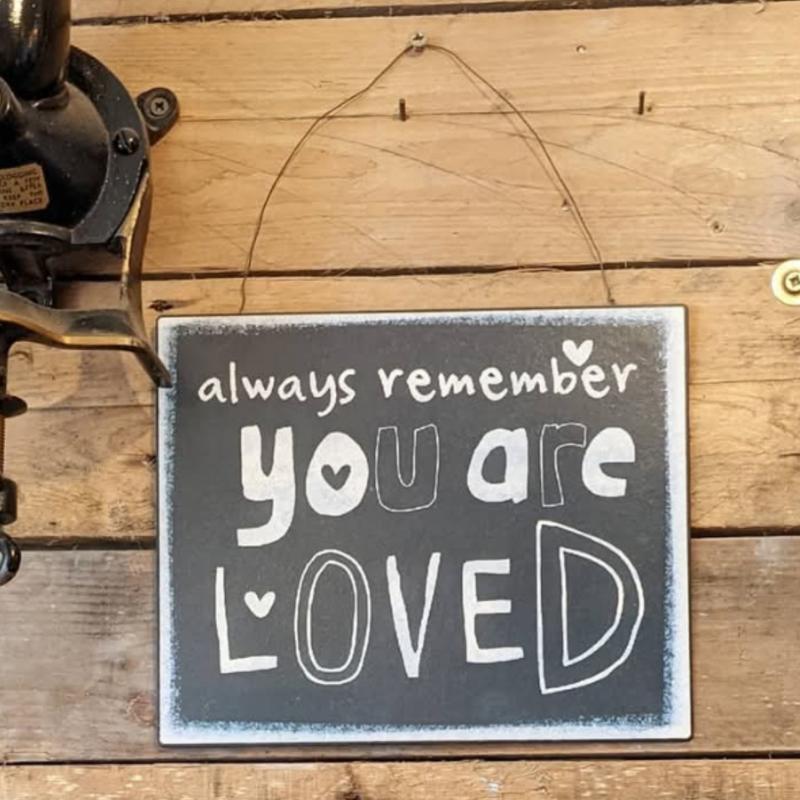 always remember
you are
LOVED